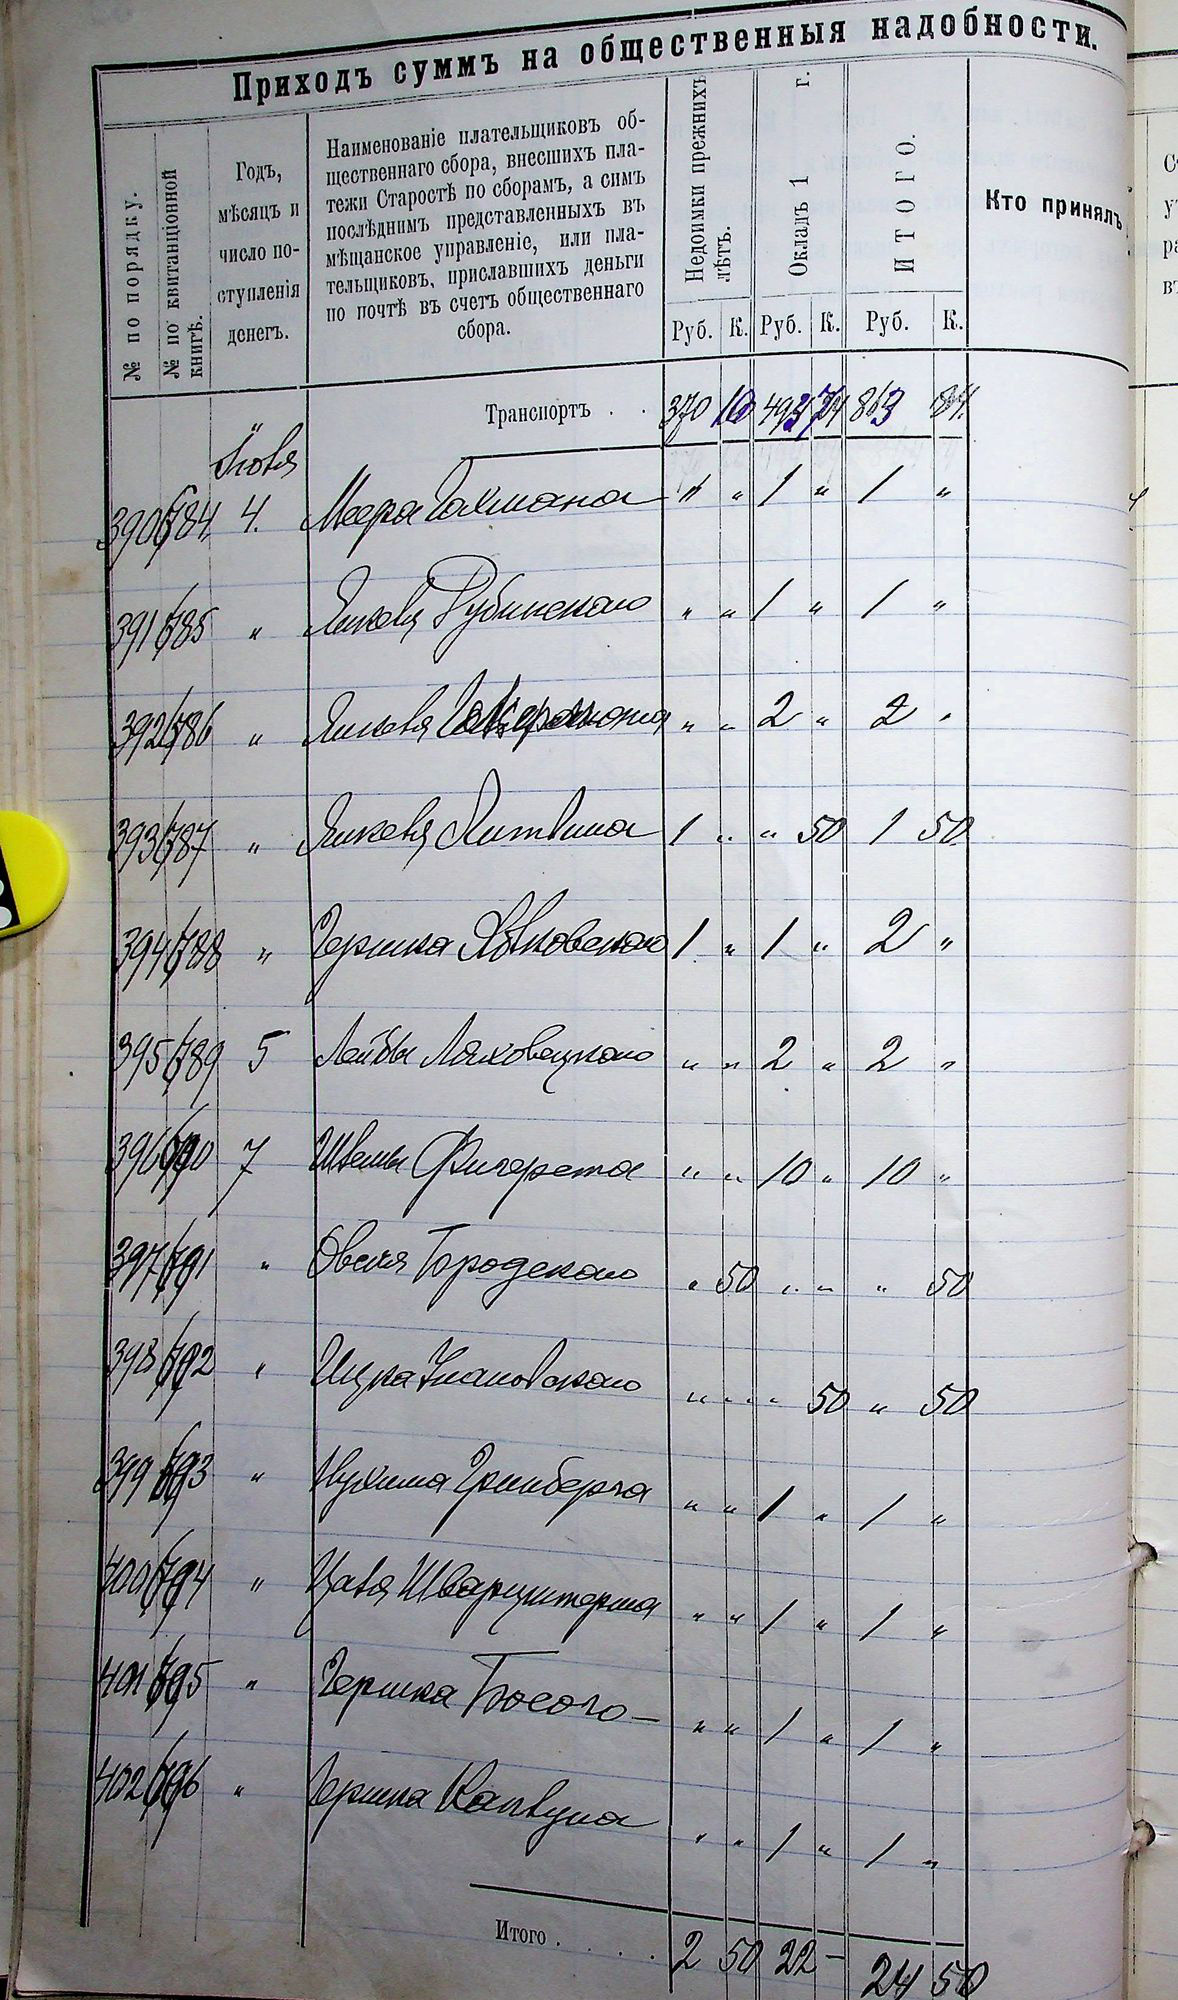 Приходъ суммъ на общественныя надобности.
№ по порядку.
№ по квитанціонной книгѣ.
Годъ,
мѣсяцъ и
число по-
ступленія
денегъ.
Наименованіе плательщиковъ об-
щественнаго сбора, внесшихъ пла-
тежи Старостѣ по сборамъ, а симъ
послѣднимъ представленныхъ въ
мѣщанское управленіе, или пла-
тельщиковъ, приславшихъ деньги
по почтѣ въ счетъ общественнаго
сбора.
Недоимки прежнихъ лѣтъ.
Окладъ 1 г.
ИТОГО.
Кто принялъ
Руб. К. Руб. К. Руб. К.
Транспортъ . . 370 10 493 74 863 84
Іюня
390 784 4. Меера Гахмана " " 1 " 1 "
391 785 " Янкеля Рубинскаго " " 1 " 1 "
392 786 " Янкеля " " 2 " 2 "
393 787 " Янкеля Литвина 1 " " 50 1 50
394 788 " Гершка 1 " 1 " 2 "
395 789 5 Лейбы Ляховецкаго " " 2 " 2 "
396 790 7 " " 10 " 10 "
397 791 " Овсея Городскаго " 50 " " " 50
398 792 " Ицка Улановскаго " " " 50 " 50
399 793 " Нухима Гринберга " " 1 " 1 "
400 794 " Шварцштерна " " 1 " 1 "
401 795 " Гершка Босого – " " 1 " 1 "
402 796 " Гершка " " 1 " 1 "
Итого . . . . 2 50 22 – 24 50